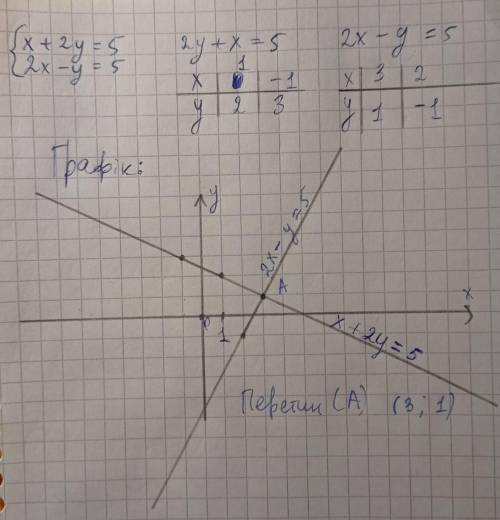 x + 2y = 5
2x - y = 5
2y + x = 5
x 1 -1
y 2 3
2x - y = 5
x 3 2
y 1 -1
Графік:
y
2x - y = 5
A
x
0 1
x + 2y = 5
Перетин (A) (3; 1)